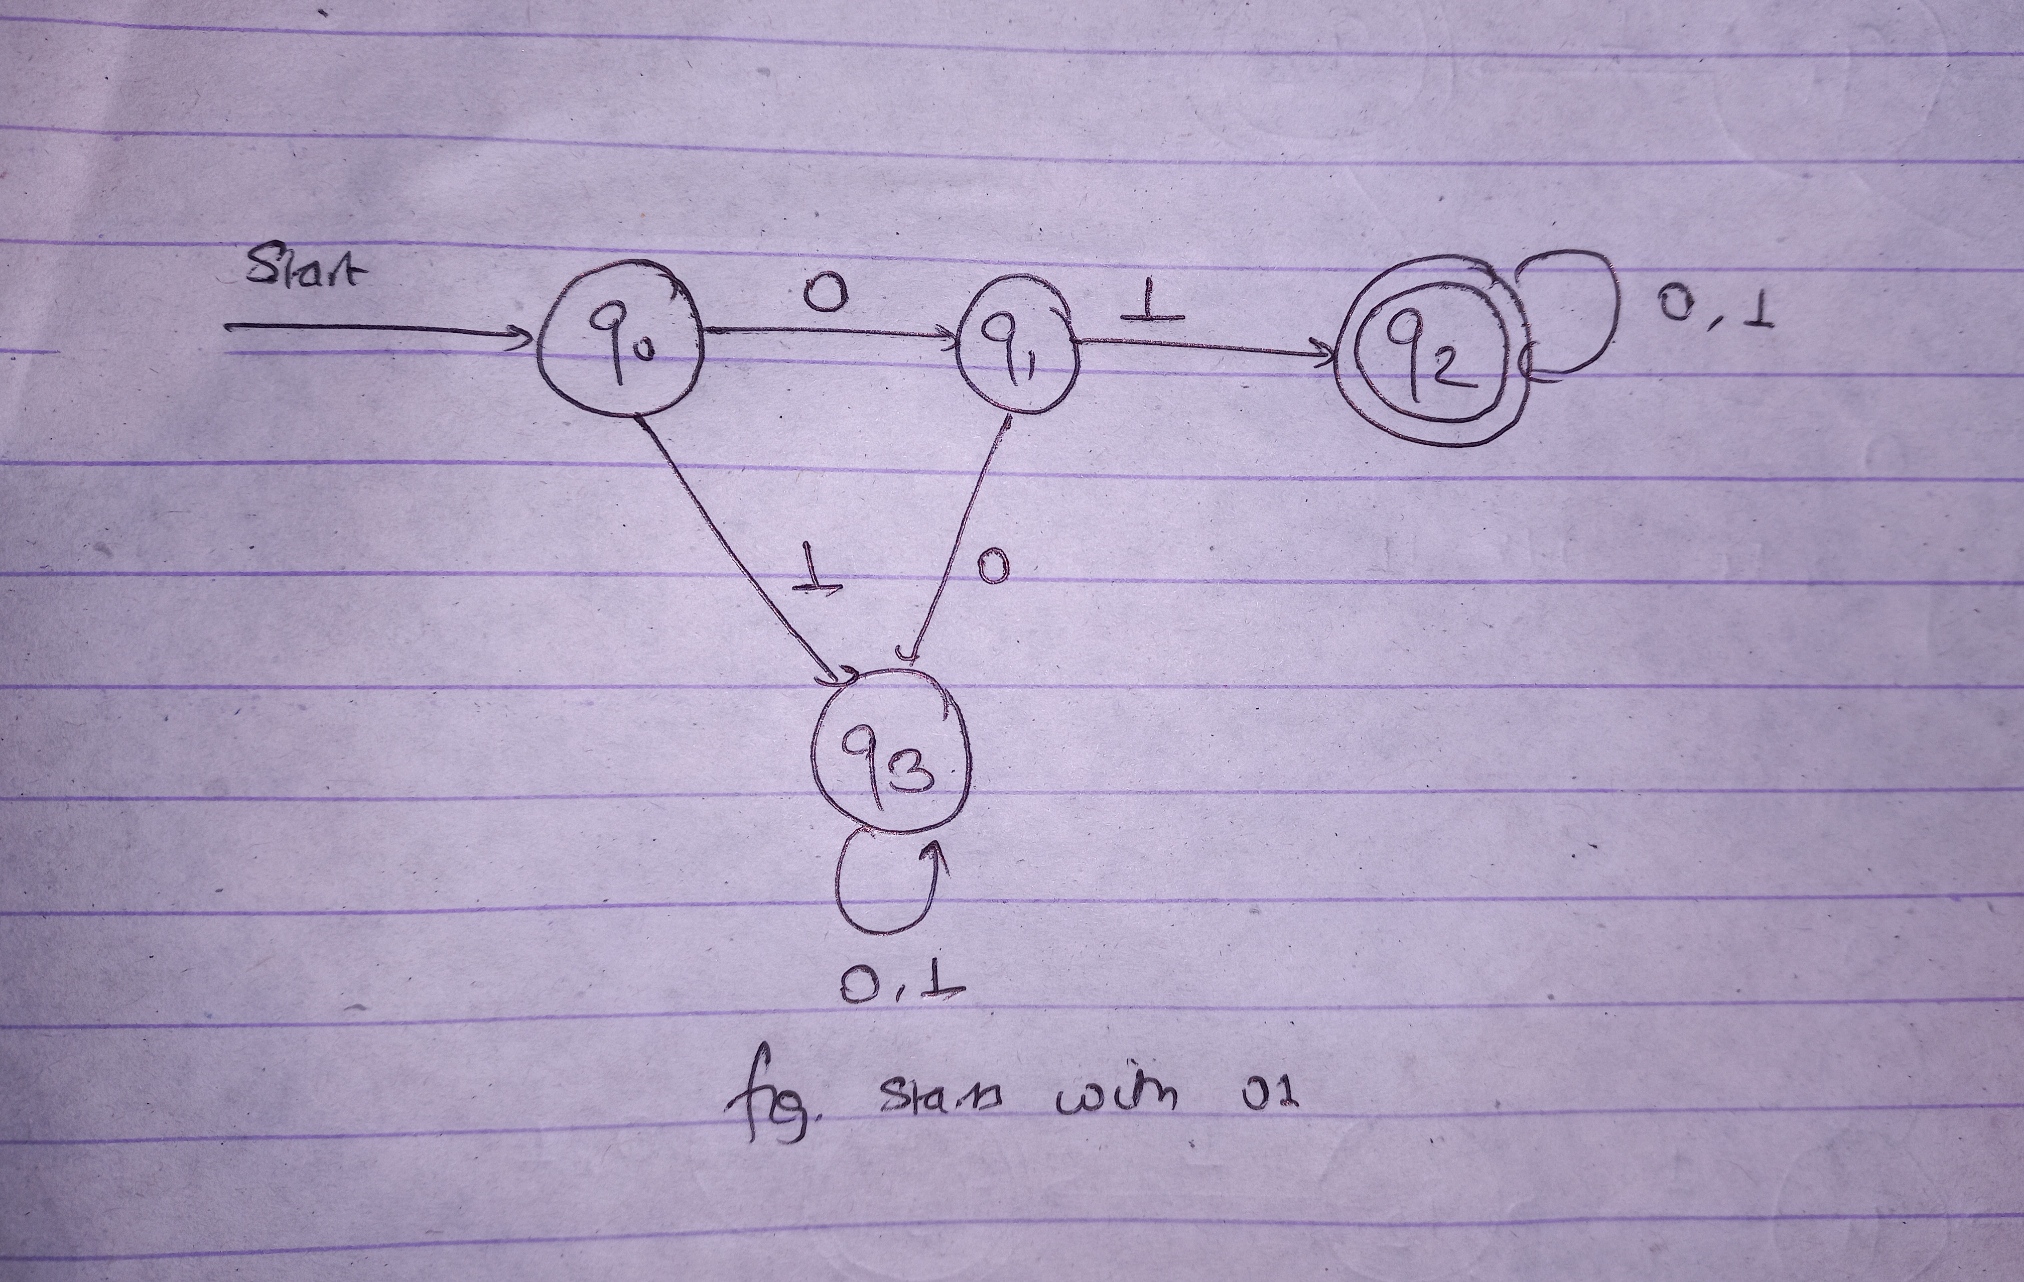 Start
0
1
q0
q1
q2
0,1
1
0
q3
0,1
fig. Starts with 01